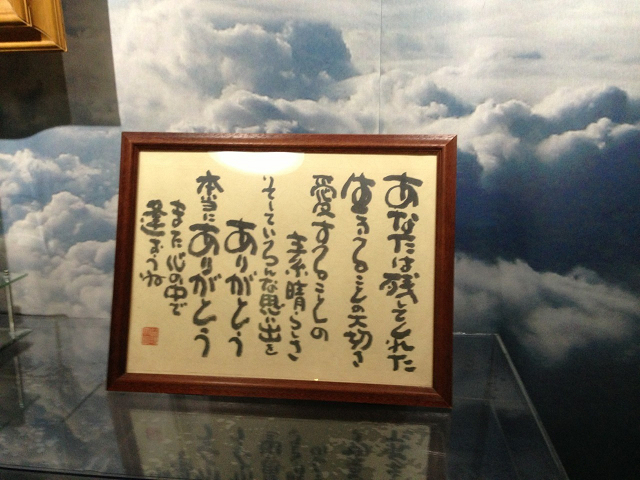 あなたは残してくれた
生きてることの大切さ
愛することの
素晴らしさ
そしていろんな思い出を
ありがとう
本当にありがとう
また心の中で
逢おうね